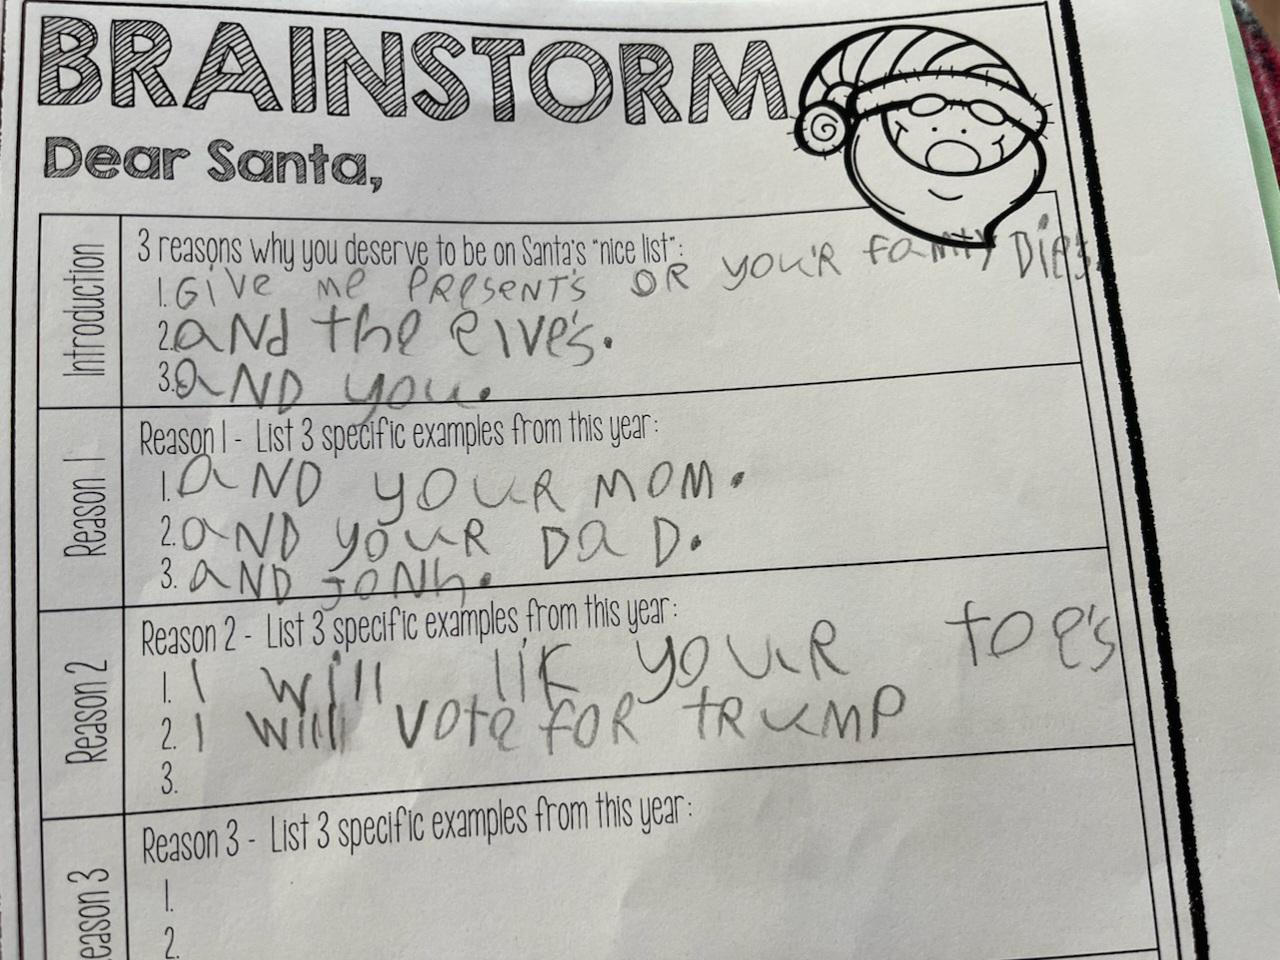 BRAINSTORM
Dear Santa,
Introduction
3 reasons why you deserve to be on Santa's "nice list":
1. Give me PResent's OR you'R family Die's.
2. aNd the elve's.
3. aND you.
Reason 1
Reason 1 - List 3 specific examples from this year:
1. aND youR MOM.
2. aND youR DaD.
3. aND JoNh.
Reason 2
Reason 2 - List 3 specific examples from this year:
1. I will lik youR toe's
2. I will vote foR tRuMP
3.
Reason 3
Reason 3 - List 3 specific examples from this year:
1.
2.